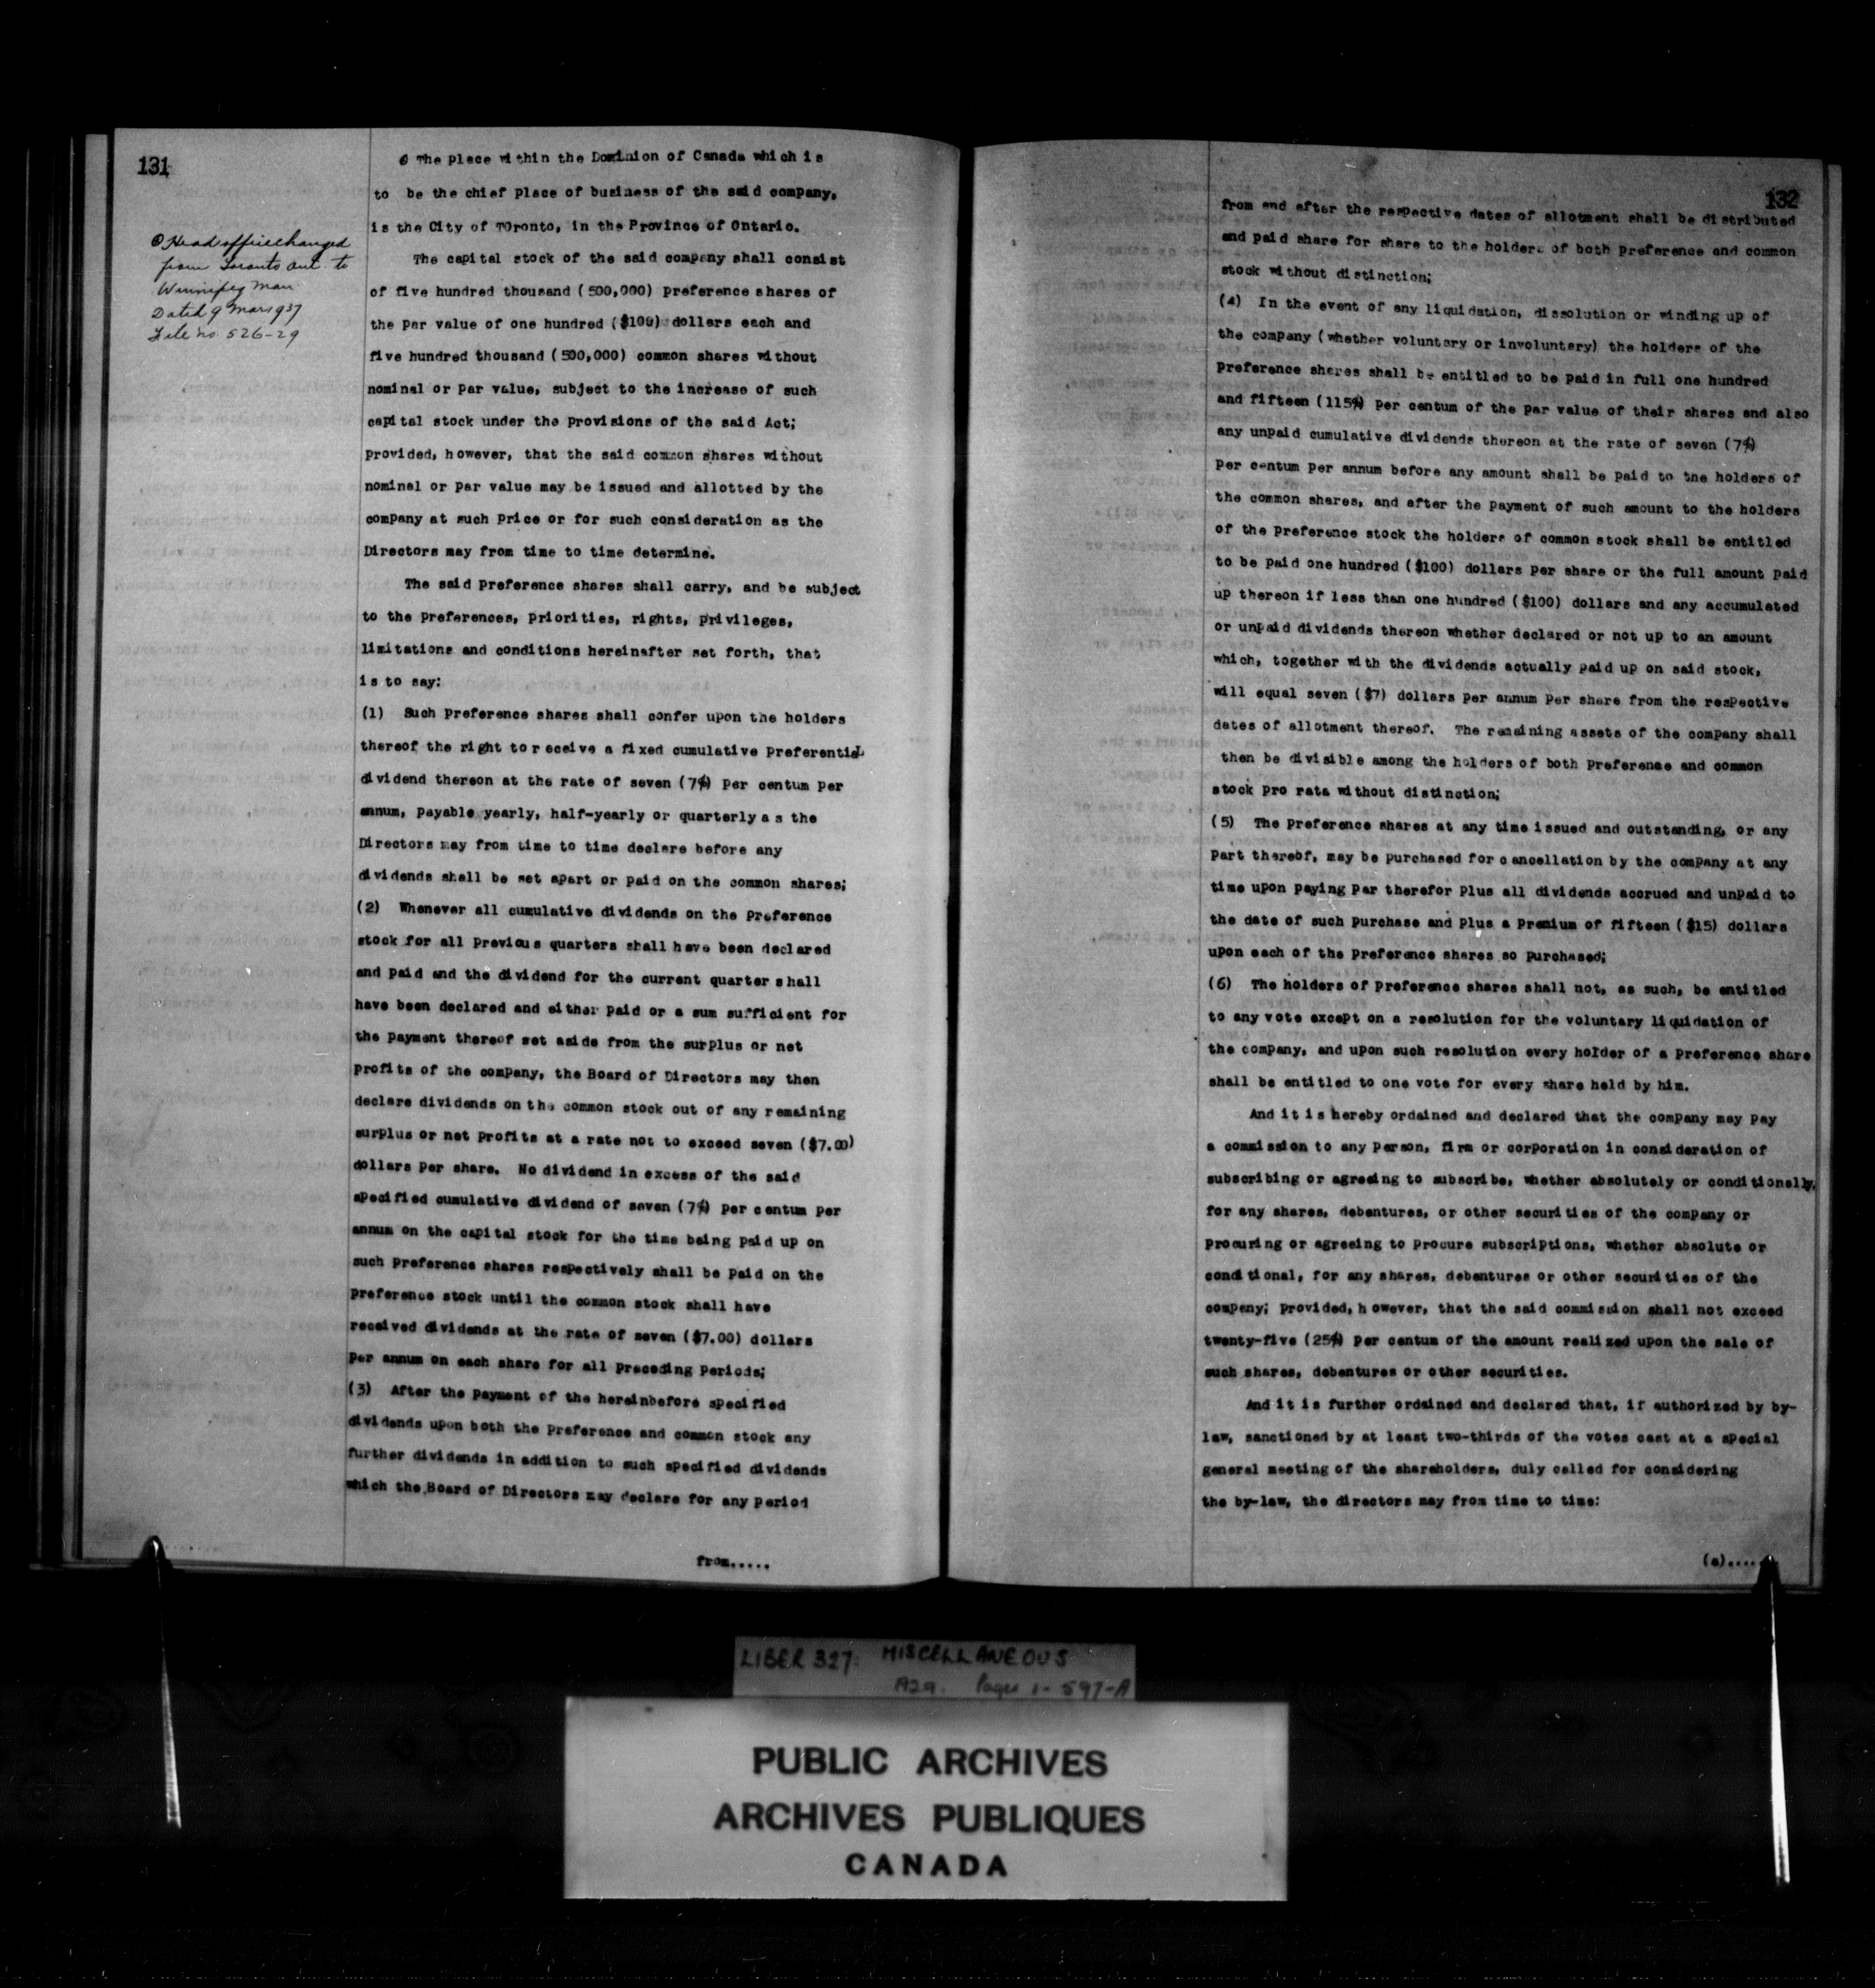 131
⊙ Head office changed
from Toronto Ont. to
Winnipeg Man
Dated 9 Mar 1937
File No. 526-29
The Place within the Dominion of Canada which is
to be the chief Place of business of the said company,
is the City of TOronto, in the Province of Ontario.
The capital stock of the said company shall consist
of five hundred thousand (500,000) Preference shares of
the Par value of one hundred ($100) dollars each and
five hundred thousand (500,000) common shares without
nominal or Par value, subject to the increase of such
capital stock under the Provisions of the said Act;
Provided, however, that the said common shares without
nominal or Par value may be issued and allotted by the
company at such Price or for such consideration as the
Directors may from time to time determine.
The said Preference shares shall carry, and be subject
to the Preferences, Priorities, rights, Privileges,
limitations and conditions hereinafter set forth, that
is to say:
(1) Such Preference shares shall confer upon the holders
thereof the right to receive a fixed cumulative Preferential
dividend thereon at the rate of seven (7%) Per centum Per
annum, Payable yearly, half-yearly or quarterly as the
Directors may from time to time declare before any
dividends shall be set apart or Paid on the common shares;
(2) Whenever all cumulative dividends on the Preference
stock for all Previous quarters shall have been declared
and Paid and the dividend for the current quarter shall
have been declared and either Paid or a sum sufficient for
the Payment thereof set aside from the surplus or net
Profits of the company, the Board of Directors may then
declare dividends on the common stock out of any remaining
surplus or net Profits at a rate not to exceed seven ($7.00)
dollars Per share. No dividend in excess of the said
specified cumulative dividend of seven (7%) Per centum Per
annum on the capital stock for the time being Paid up on
such Preference shares respectively shall be Paid on the
Preference stock until the common stock shall have
received dividends at the rate of seven ($7.00) dollars
Per annum on each share for all Preceding Periods;
(3) After the Payment of the hereinbefore specified
dividends upon both the Preference and common stock any
further dividends in addition to such specified dividends
which the Board of Directors may declare for any Period
from.....
132
from and after the respective dates of allotment shall be distributed
and paid share for share to the holders of both Preference and common
stock without distinction;
(4) In the event of any liquidation, dissolution or winding up of
the company (whether voluntary or involuntary) the holders of the
Preference shares shall be entitled to be Paid in full one hundred
and fifteen (115%) Per centum of the Par value of their shares and also
any unpaid cumulative dividends thereon at the rate of seven (7%)
Per centum Per annum before any amount shall be Paid to the holders of
the common shares, and after the Payment of such amount to the holders
of the Preference stock the holders of common stock shall be entitled
to be Paid one hundred ($100) dollars Per share or the full amount Paid
up thereon if less than one hundred ($100) dollars and any accumulated
or unpaid dividends thereon whether declared or not up to an amount
which, together with the dividends actually Paid up on said stock,
will equal seven ($7) dollars Per annum Per share from the respective
dates of allotment thereof. The remaining assets of the company shall
then be divisible among the holders of both Preference and common
stock Pro rata without distinction;
(5) The Preference shares at any time issued and outstanding, or any
Part thereof, may be Purchased for cancellation by the company at any
time upon paying Par therefor Plus all dividends accrued and unpaid to
the date of such Purchase and Plus a Premium of fifteen ($15) dollars
upon each of the Preference shares so Purchased;
(6) The holders of Preference shares shall not, as such, be entitled
to any vote except on a resolution for the voluntary liquidation of
the company, and upon such resolution every holder of a Preference share
shall be entitled to one vote for every share held by him.
And it is hereby ordained and declared that the company may Pay
a commission to any Person, firm or corporation in consideration of
subscribing or agreeing to subscribe, whether absolutely or conditionally,
for any shares, debentures, or other securities of the company or
Procuring or agreeing to Procure subscriptions, whether absolute or
conditional, for any shares, debentures or other securities of the
company; Provided, however, that the said commission shall not exceed
twenty-five (25%) Per centum of the amount realized upon the sale of
such shares, debentures or other securities.
And it is further ordained and declared that, if authorized by by-
law, sanctioned by at least two-thirds of the votes cast at a special
general meeting of the shareholders, duly called for considering
the by-law, the directors may from time to time:
(a)....
LIBER 327. MISCELLANEOUS
1929. Pages 1-597-A
PUBLIC ARCHIVES
ARCHIVES PUBLIQUES
CANADA